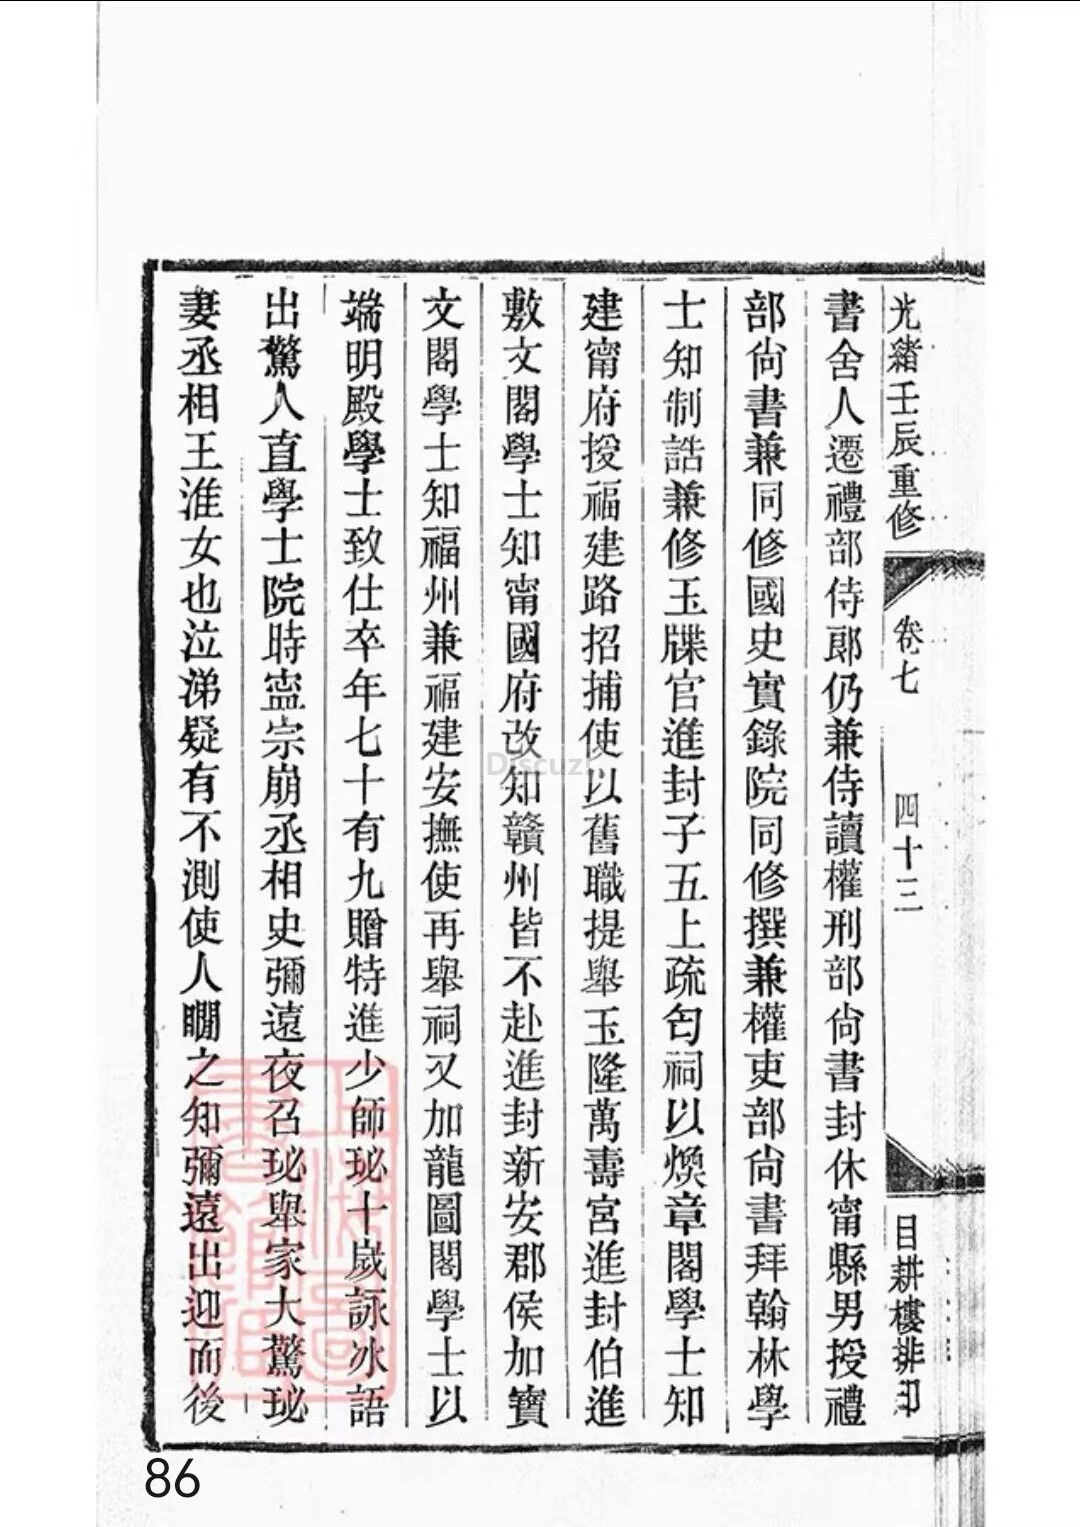 光緒壬辰重修 卷七 四十三 目耕樓排印
書舍人遷禮部侍郎仍兼侍讀權刑部尙書封休甯縣男授禮
部尙書兼同修國史實錄院同修撰兼權吏部尙書拜翰林學
士知制誥兼修玉牒官進封子五上疏匄祠以煥章閣學士知
建甯府授福建路招捕使以舊職提舉玉隆萬壽宮進封伯進
敷文閣學士知甯國府改知贛州皆不赴進封新安郡侯加寶
文閣學士知福州兼福建安撫使再舉祠又加龍圖閣學士以
端明殿學士致仕卒年七十有九贈特進少師珌十歲詠冰語
出驚人直學士院時寍宗崩丞相史彌遠夜召珌舉家大驚珌
妻丞相王淮女也泣涕疑有不測使人瞯之知彌遠出迎而後
Discuz!
86